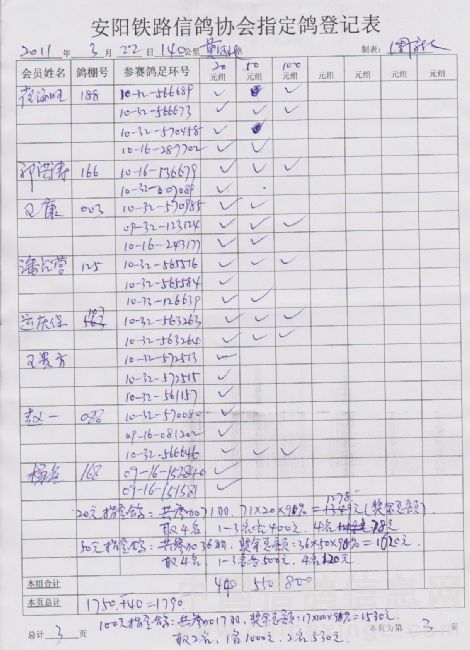 安阳铁路信鸽协会指定鸽登记表
2011 年 3 月 22 日 140 公里 站 制表:
会员姓名 鸽棚号 参赛鸽足环号 20元组 50元组 100元组 元组 元组 元组 元组
188 10-32-566689 ✓ ✓
10-32-566673 ✓ ✓ ✓
10-32-570458 ✓
10-16-289702 ✓ ✓
166 10-16-136679 ✓ ✓ ✓
10-32-609089 ✓
王康 003 10-32-570985 ✓ ✓
09-32-123124 ✓ ✓ ✓
10-16-243177 ✓ ✓
125 10-32-565516 ✓ ✓ ✓
10-32-565584 ✓
10-32-126639 ✓ ✓
10-32-563263 ✓ ✓ ✓
10-32-563264 ✓ ✓ ✓
王贵方 10-32-572513 ✓
10-32-572515 ✓
10-32-561157 ✓
赵一 088 10-32-570080 ✓
09-16-081202 ✓
10-32-566646 ✓ ✓ ✓
168 09-16-151581 ✓
20元指定鸽: 共参加71羽, 71×20×90%= 1278元(奖金总额)
取4名 1-3名各400元, 4名 78元
50元指定鸽: 共参加36羽, 奖金总额: 36×50×90%=1620元
取4名 1-3名各500元, 4名120元
本组合计 440 550 800
本页总计 1750+40=1790
100元指定鸽: 共参加17羽, 奖金总额: 17×100×90%=1530元
总计 3 页 取2名, 1名1000元, 2名530元 本页为第 3 页